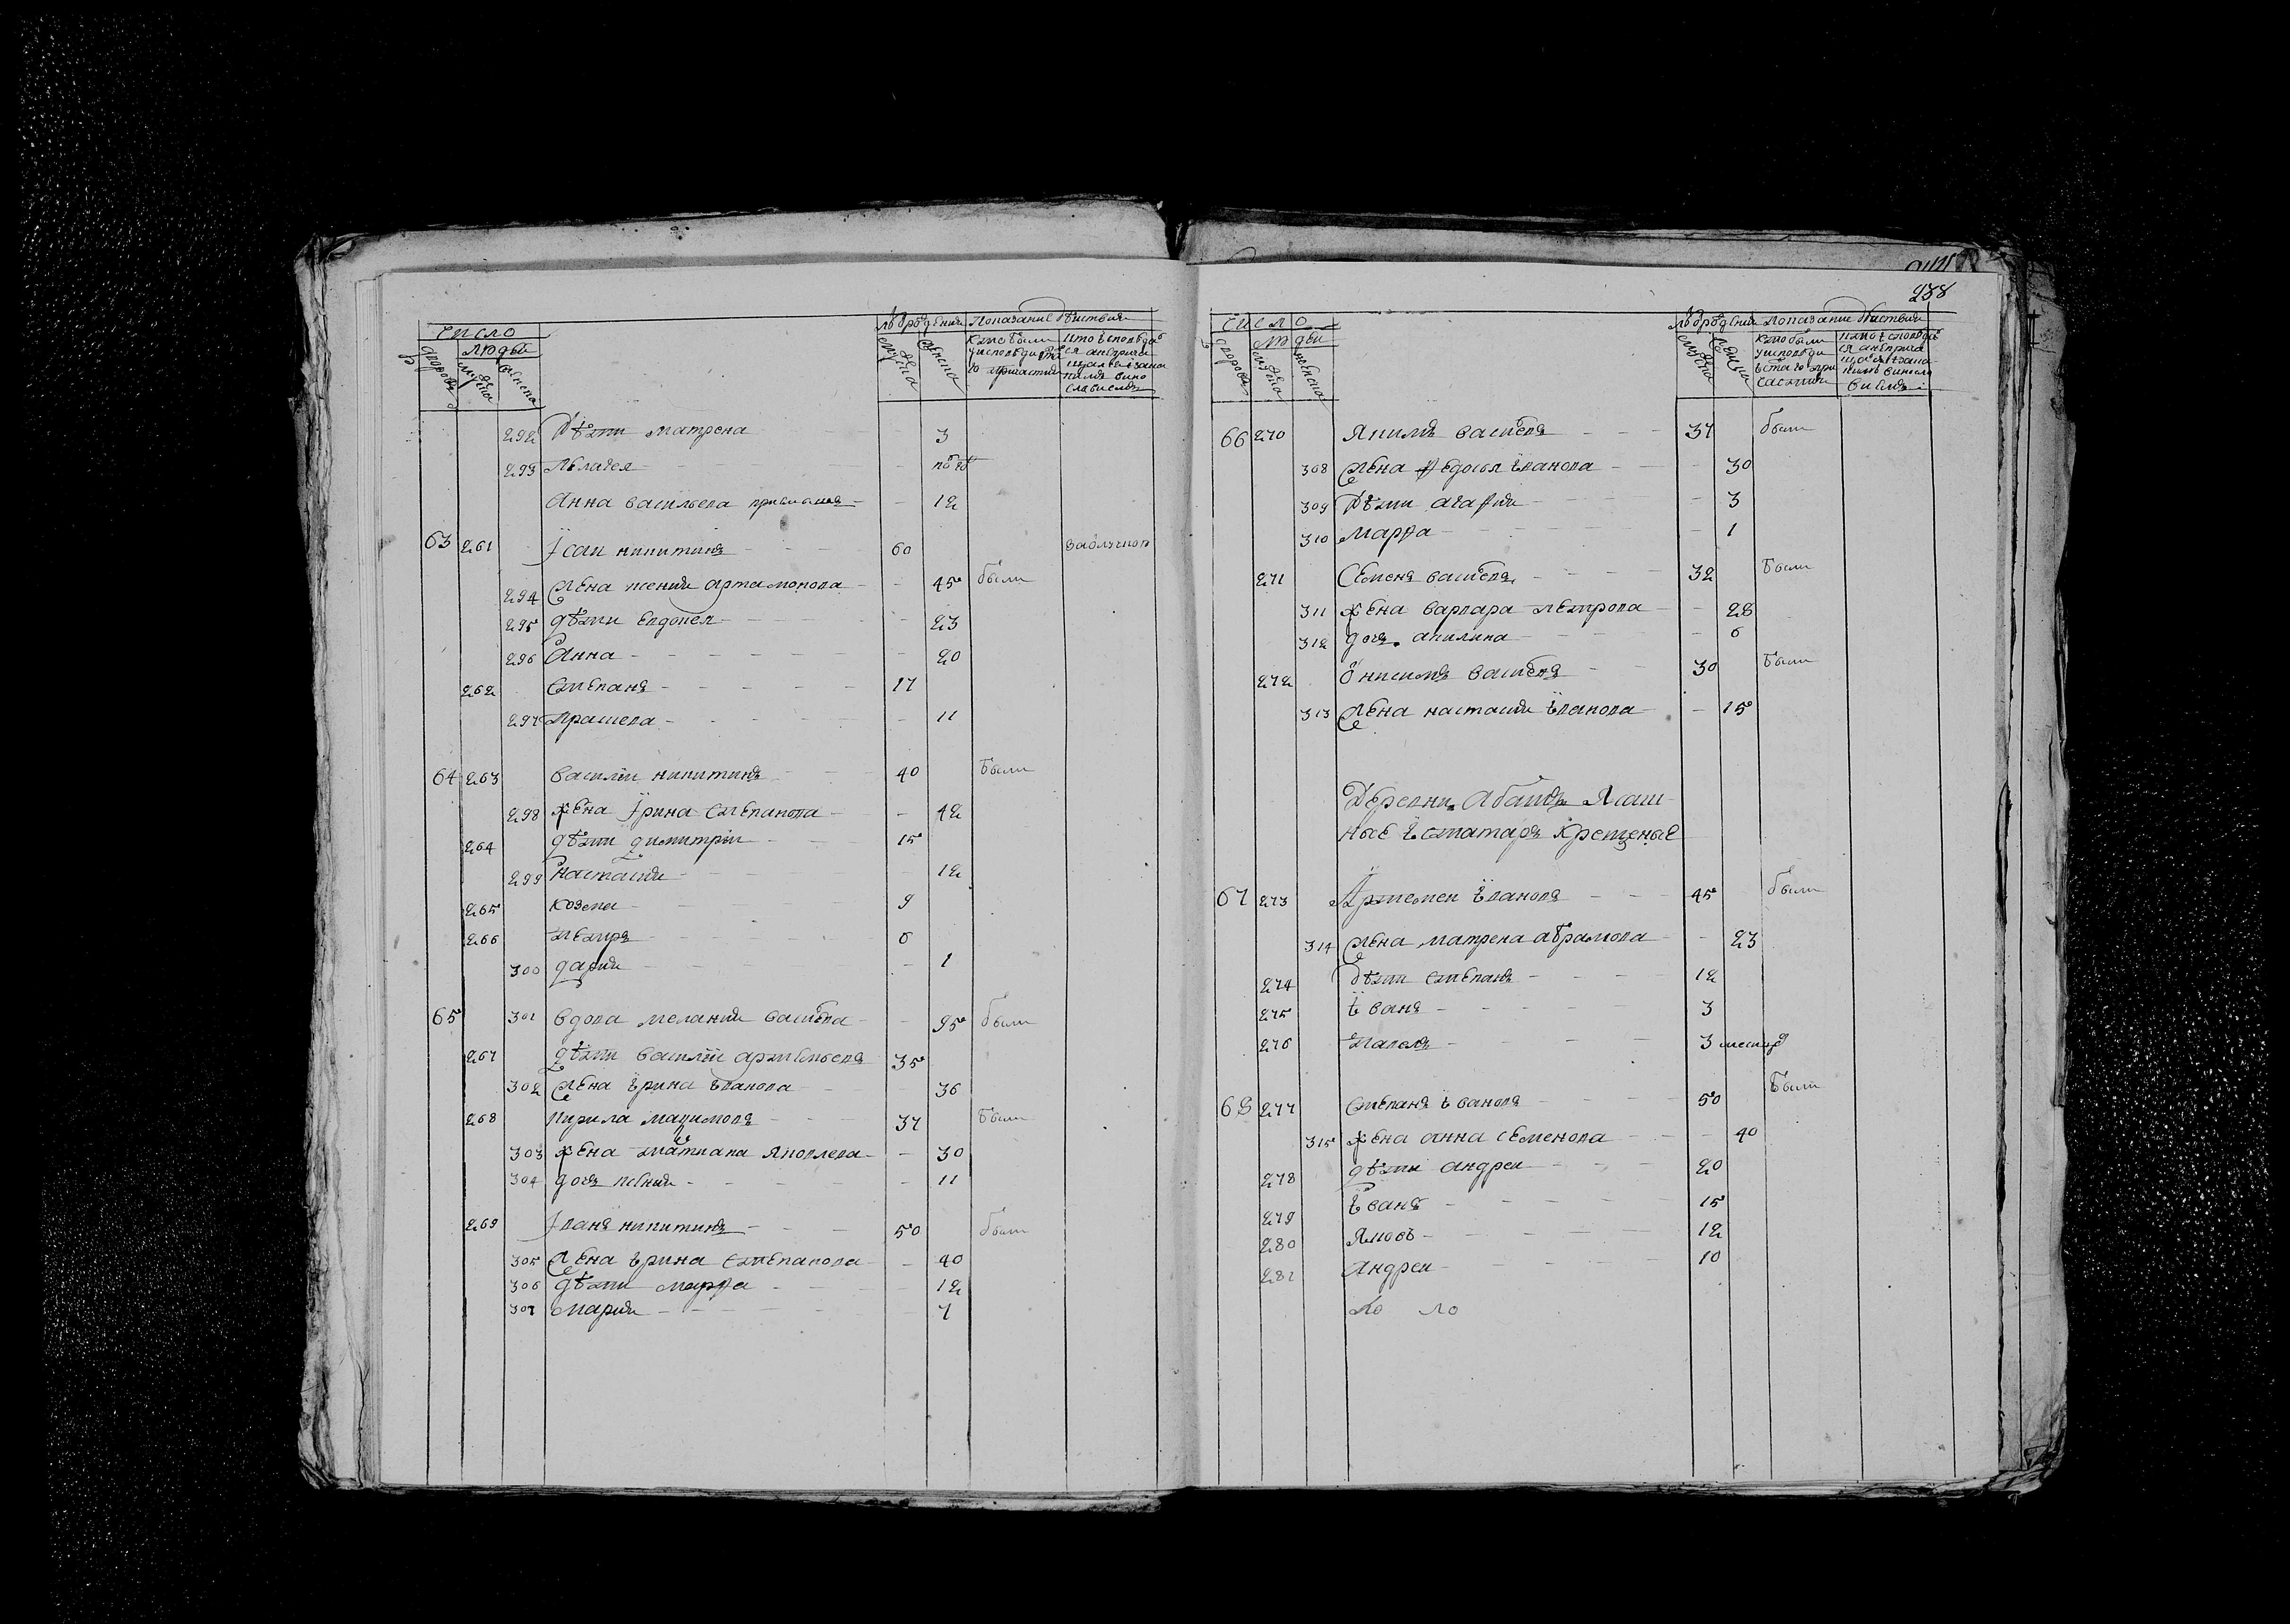 число
людей
дворовъ
мужеска
женска
лѣ от рождения
Показание дѣйствия
мужеска
женска
292 Дѣти матрена 3
293 Пелагея пол го
Анна васильева 12
63 261 Исаи никитинъ 60
294 Жена ксения артамонова 45 были
295 дѣти Евдокея 23
296 Анна 20
262 Степанъ 17
297 Прасковя 11
64 263 василеи никитинъ 40 были
298 жена Ирина Степанова 42
264 дѣти димитреи 15
299 Настасия 12
265 козма 9
266 петръ 6
300 дария 1
65 301 вдова мелания васильева 95 были
267 дѣти василеи артемьевъ 35
302 Жена ирина иванова 36
268 кирила максимовъ 37 были
303 жена татиана яковлева 30
304 дочь ксения 11
269 Иванъ никитинъ 50 были
305 Жена ирина степанова 40
306 дѣти марfа 12
307 Мария 7
238
число
людеи
дворовъ
мужеска
женска
лѣ от рождения Показание дѣйствия
мужеска
женска
66 270 Якимъ васильевъ 37 были
308 Жена федосья иванова 30
309 Дѣти агафия 3
310 Марfа 1
271 Семенъ васильевъ 32 были
311 жена варвара петрова 28
312 дочь акилина 6
272 Онисимъ васильевъ 30 были
313 Жена настасия иванова 15
Деревни Абаиды Ясаш
ные ис татаръ крещеные
67 273 Артемеи ивановъ 45 были
314 Жена матрена абрамова 23
274 дѣти степанъ 12
275 иванъ 3
276 павелъ 3 месяцо
68 277 степанъ ивановъ 50 были
315 жена анна семенова 40
278 дѣти андреи 20
279 иванъ 15
280 Яковъ 12
281 Андреи 10